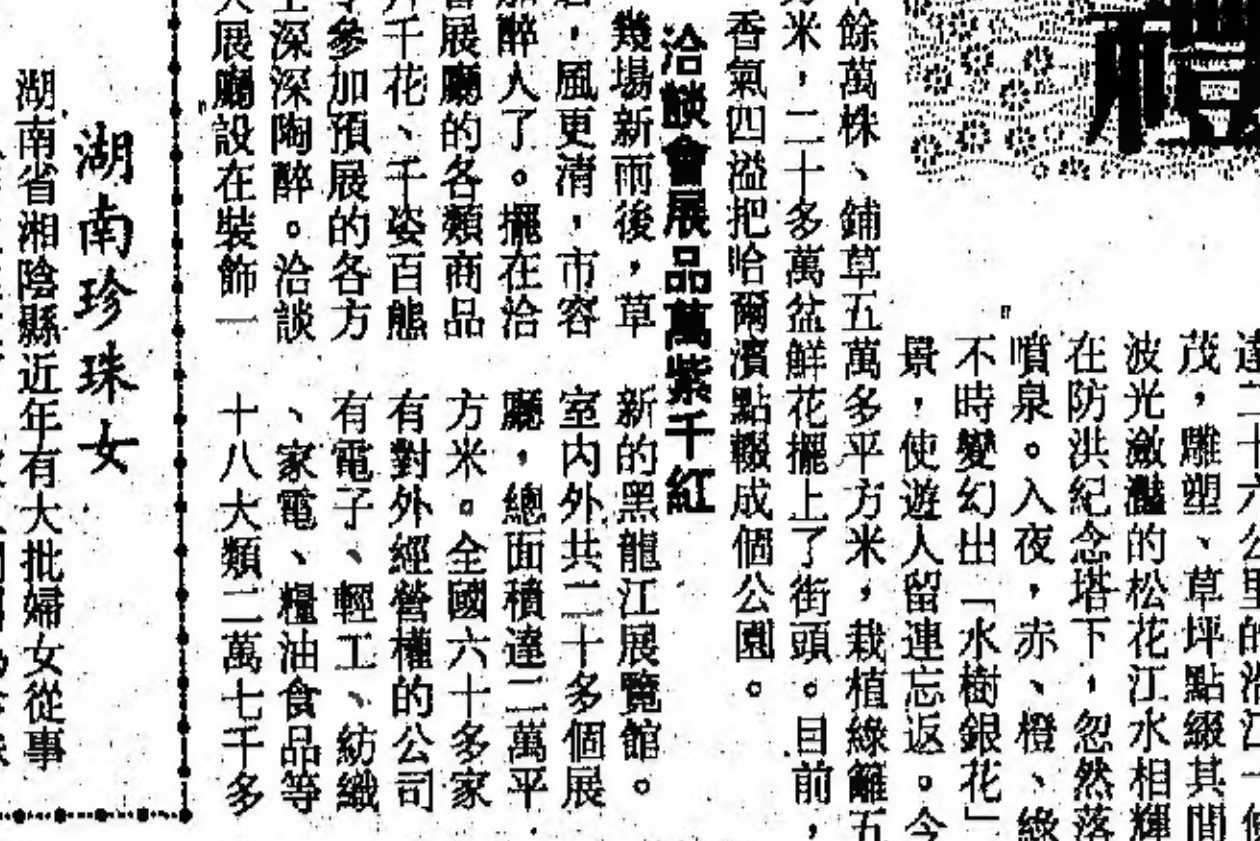 禮
二十六公里的
茂，雕塑、草坪點綴其間
波光瀲灩的松花江水相輝
在防洪紀念塔下，忽然落
噴泉。入夜，赤、橙、綠
不時變幻出「水樹銀花」
景，使遊人留連忘返。今
餘萬株、鋪草五萬多平方米，栽植綠籬五
米，二十多萬盆鮮花擺上了街頭。目前，
香氣四溢把哈爾濱點輟成個公園。
洽談會展品萬紫千紅
幾場新雨後，草
，風更清，市容
醉人了。擺在洽
展廳的各類商品
千花、千姿百態
參加預展的各方
深深陶醉。洽談
大展廳設在裝飾一
新的黑龍江展覽館。
室內外共二十多個展
廳，總面積達二萬平
方米。全國六十多家
有對外經營權的公司
有電子、輕工、紡織
、家電、糧油食品等
十八大類二萬七千多
湖南珍珠女
湖南省湘陰縣近年有大批婦女從事